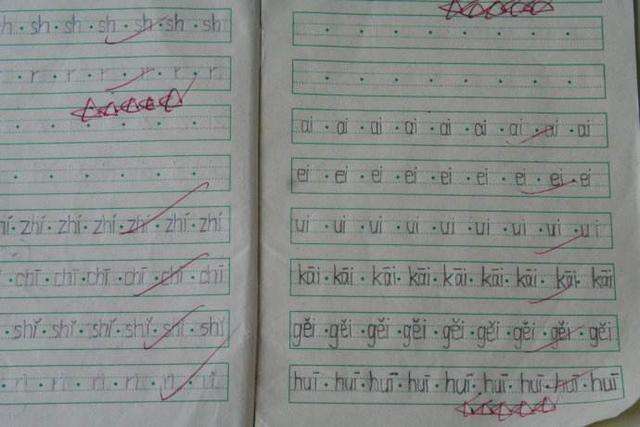 h · sh · sh · sh · sh · sh · sh
· r · r · r · r · r · r
hí · zhí · zhí · zhí · zhí · zhí · zhí
· chī · chī · chī · chī · chī · chī
· shǐ · shǐ · shǐ · shǐ · shǐ · shǐ
· rì · rì · rì · rì · rì · rì
ai · ai · ai · ai · ai · ai · ai · ai · ai
ei · ei · ei · ei · ei · ei · ei · ei · ei
ui · ui · ui · ui · ui · ui · ui · ui · ui
kāi · kāi · kāi · kāi · kāi · kāi · kāi · kāi · kāi
gěi · gěi · gěi · gěi · gěi · gěi · gěi · gěi · gěi
huī · huī · huī · huī · huī · huī · huī · huī · huī